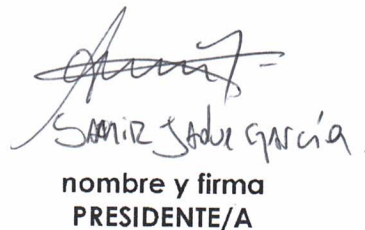 SAMIR JADUE GARCÍA
nombre y firma
PRESIDENTE/A